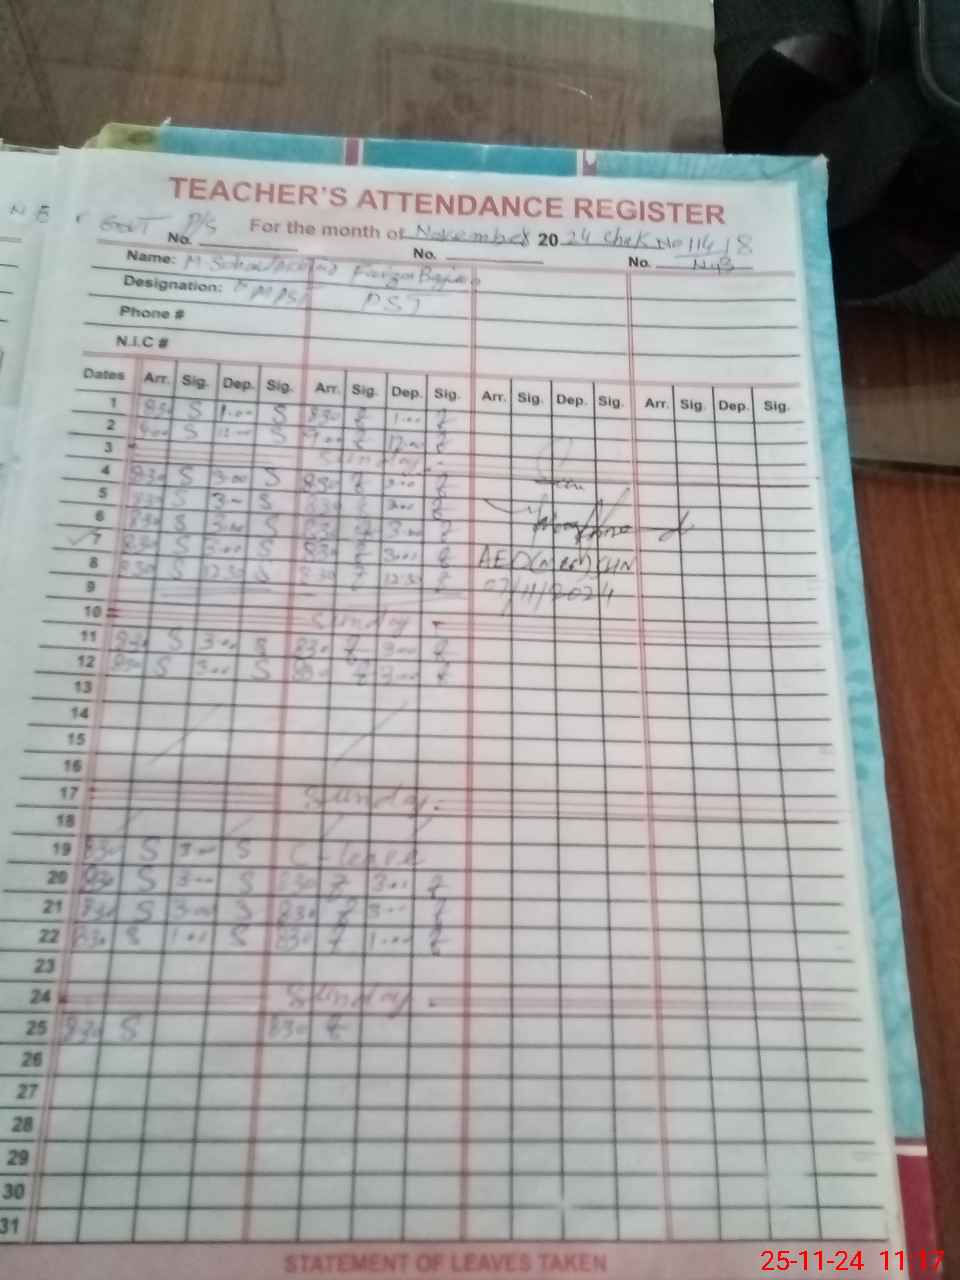 TEACHER'S ATTENDANCE REGISTER
GOVT P/S For the month of November 20 24 Chak No 114/8
No. No. No. N.B
Name: M
Designation: PST
Phone #
N.I.C #
Dates Arr. Sig. Dep. Sig. Arr. Sig. Dep. Sig. Arr. Sig. Dep. Sig. Arr. Sig. Dep. Sig.
1 830 S 1.00 S 830 1.00
2 900 S 12.00 S 900 12.00
3 Sunday.
4 830 S 3.00 S 830 3.00
5 830 S 3.00 S 830 3.00
6 830 S 3.00 S 830 3.00
7 830 S 3.00 S 830 3.00
8 830 S 12.30 S 830 12.30 AEO
9 07/11/2024
10 Sunday
11 830 S 3.00 S 830 3.00
12 830 S 3.00 S 830 3.00
13
14
15
16
17 Sunday.
18
19 830 S 3.00 S C-leave
20 830 S 3.00 S 830 3.00
21 830 S 3.00 S 830 3.00
22 830 S 1.00 S 830 1.00
23
24 Sunday.
25 830 S 830
26
27
28
29
30
31
STATEMENT OF LEAVES TAKEN
25-11-24 11:17